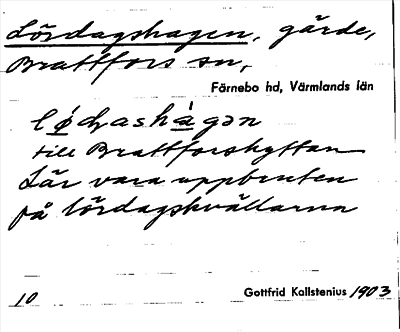 Lördagshagen, gärde,
Brattfors sn,
Färnebo hd, Värmlands län
lø̀ɖashàgən
till Brattforshyttan
Lär vara uppbruten
på lördagskvällarna
10
Gottfrid Kallstenius 1903